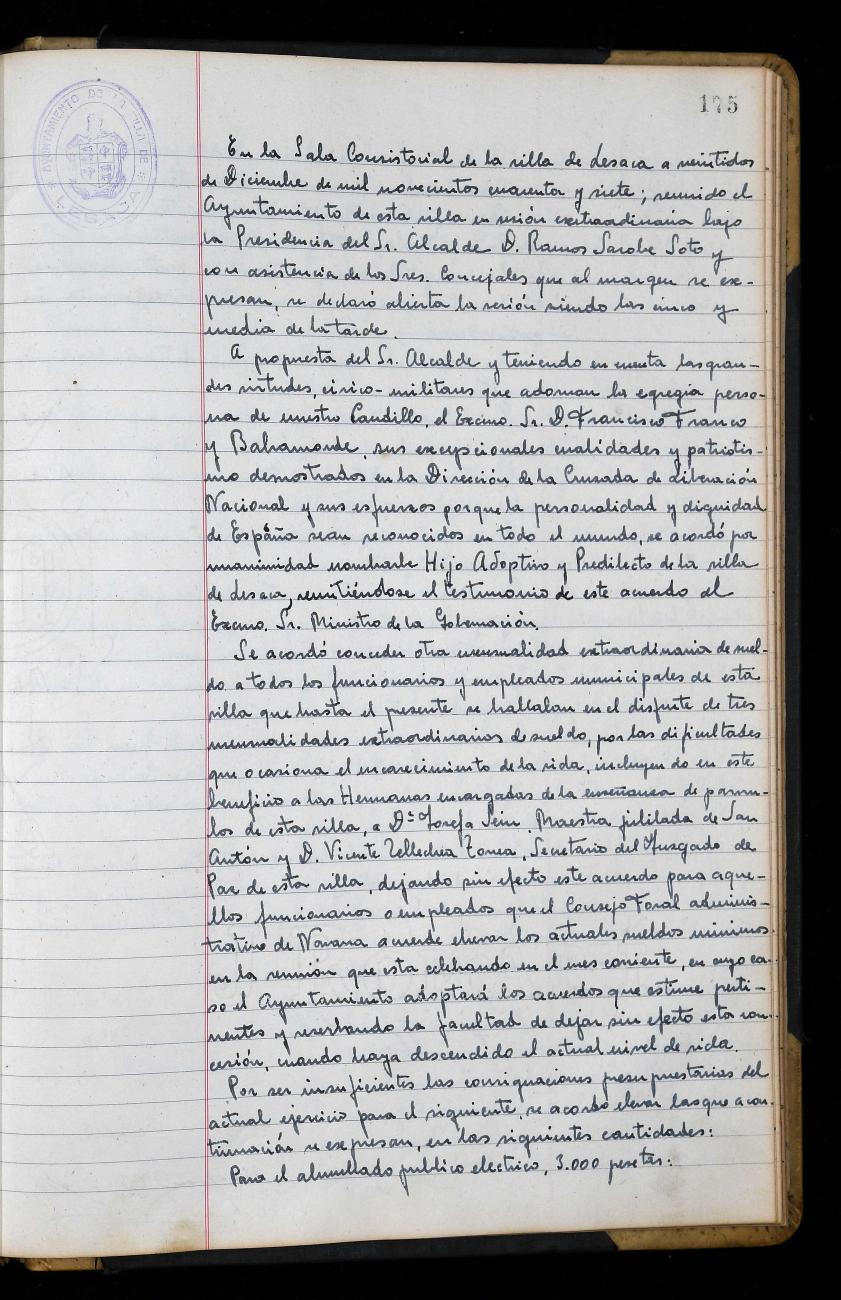 175
AYUNTAMIENTO DE LA VILLA DE
LESACA
En la Sala Consistorial de la villa de Lesaca a veintidos
de Diciembre de mil novecientos cuarenta y siete; reunido el
Ayuntamiento de esta villa en sesión extraordinaria bajo
la Presidencia del Sr. Alcalde D. Ramos Sarobe Soto y
con asistencia de los Sres. Concejales que al margen se ex-
presan, se declaró abierta la sesión siendo las cinco y
media de la tarde.
A propuesta del Sr. Alcalde y teniendo en cuenta las gran-
des virtudes, cívico-militares que adornan la egregia perso-
na de nuestro Caudillo, el Excmo. Sr. D. Francisco Franco
y Bahamonde, sus excepcionales cualidades y patriotis-
mo demostrados en la Dirección de la Cruzada de Liberación
Nacional y sus esfuerzos porque la personalidad y dignidad
de España sean reconocidos en todo el mundo, se acordó por
unanimidad nombrarle Hijo Adoptivo y Predilecto de la villa
de Lesaca, remitiéndose el testimonio de este acuerdo al
Excmo. Sr. Ministro de la Gobernación.
Se acordó conceder otra mensualidad extraordinaria de suel-
do a todos los funcionarios y empleados municipales de esta
villa que hasta el presente se hallaban en el disfrute de tres
mensualidades extraordinarias de sueldo, por las dificultades
que ocasiona el encarecimiento de la vida, incluyendo en este
beneficio a las Hermanas encargadas de la enseñanza de parvu-
los de esta villa, a Dª Josefa Sein, Maestra jubilada de San
Antón y D. Vicente Tellechea Zonea, Secretario del Juzgado de
Paz de esta villa, dejando sin efecto este acuerdo para aque-
llos funcionarios o empleados que el Consejo Foral adminis-
trativo de Navarra acuerde elevar los actuales sueldos mínimos
en la reunión que esta celebrando en el mes corriente, en cuyo ca-
so el Ayuntamiento adoptará los acuerdos que estime perti-
nentes y reserbando la facultad de dejar sin efecto esta con-
cesión, cuando haya descendido el actual nivel de vida.
Por ser insuficientes las consignaciones presupuestarias del
actual ejercicio para el siguiente, se acordó elevar las que a con-
tinuación se expresan, en las siguientes cantidades:
Para el alumbrado publico electrico, 3.000 pesetas: